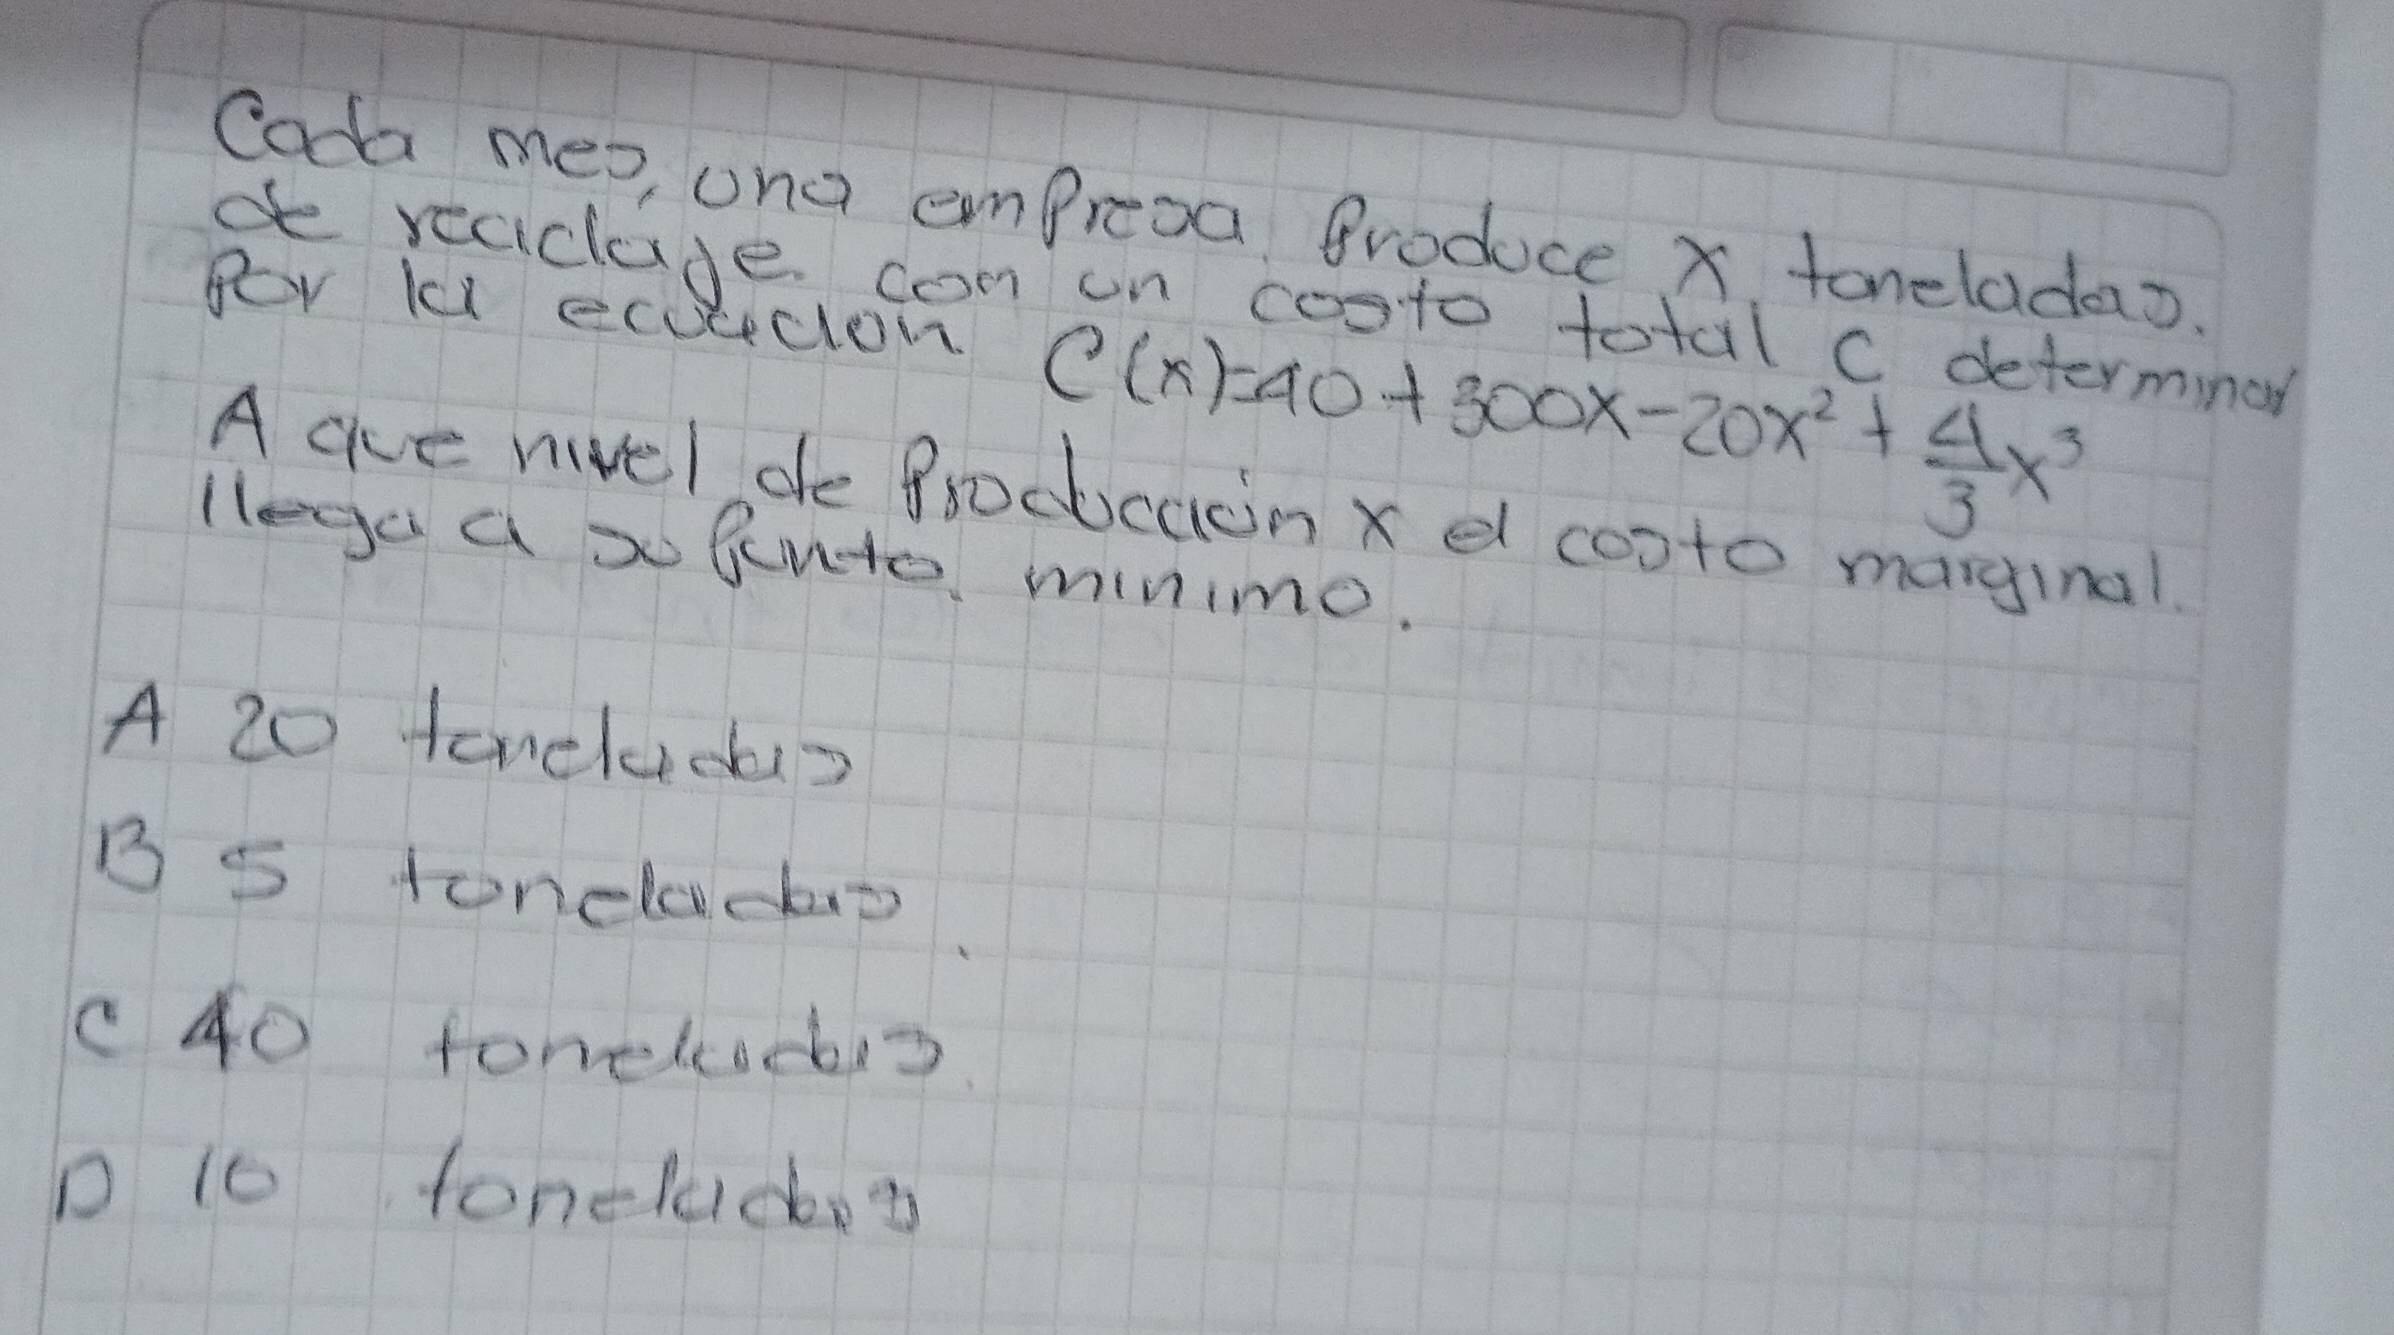 Cada mes, una empresa produce X toneladas.
de reciclaje. con un costo total C determinar
Por la ecuación C(x)=40+300x-20x²+4/3x³
A que nivel de Producción x el costo marginal.
llega a su punto. minimo.
A 20 toneladas
B 5 toneladas.
C 40 toneladas.
D 10 toneladas